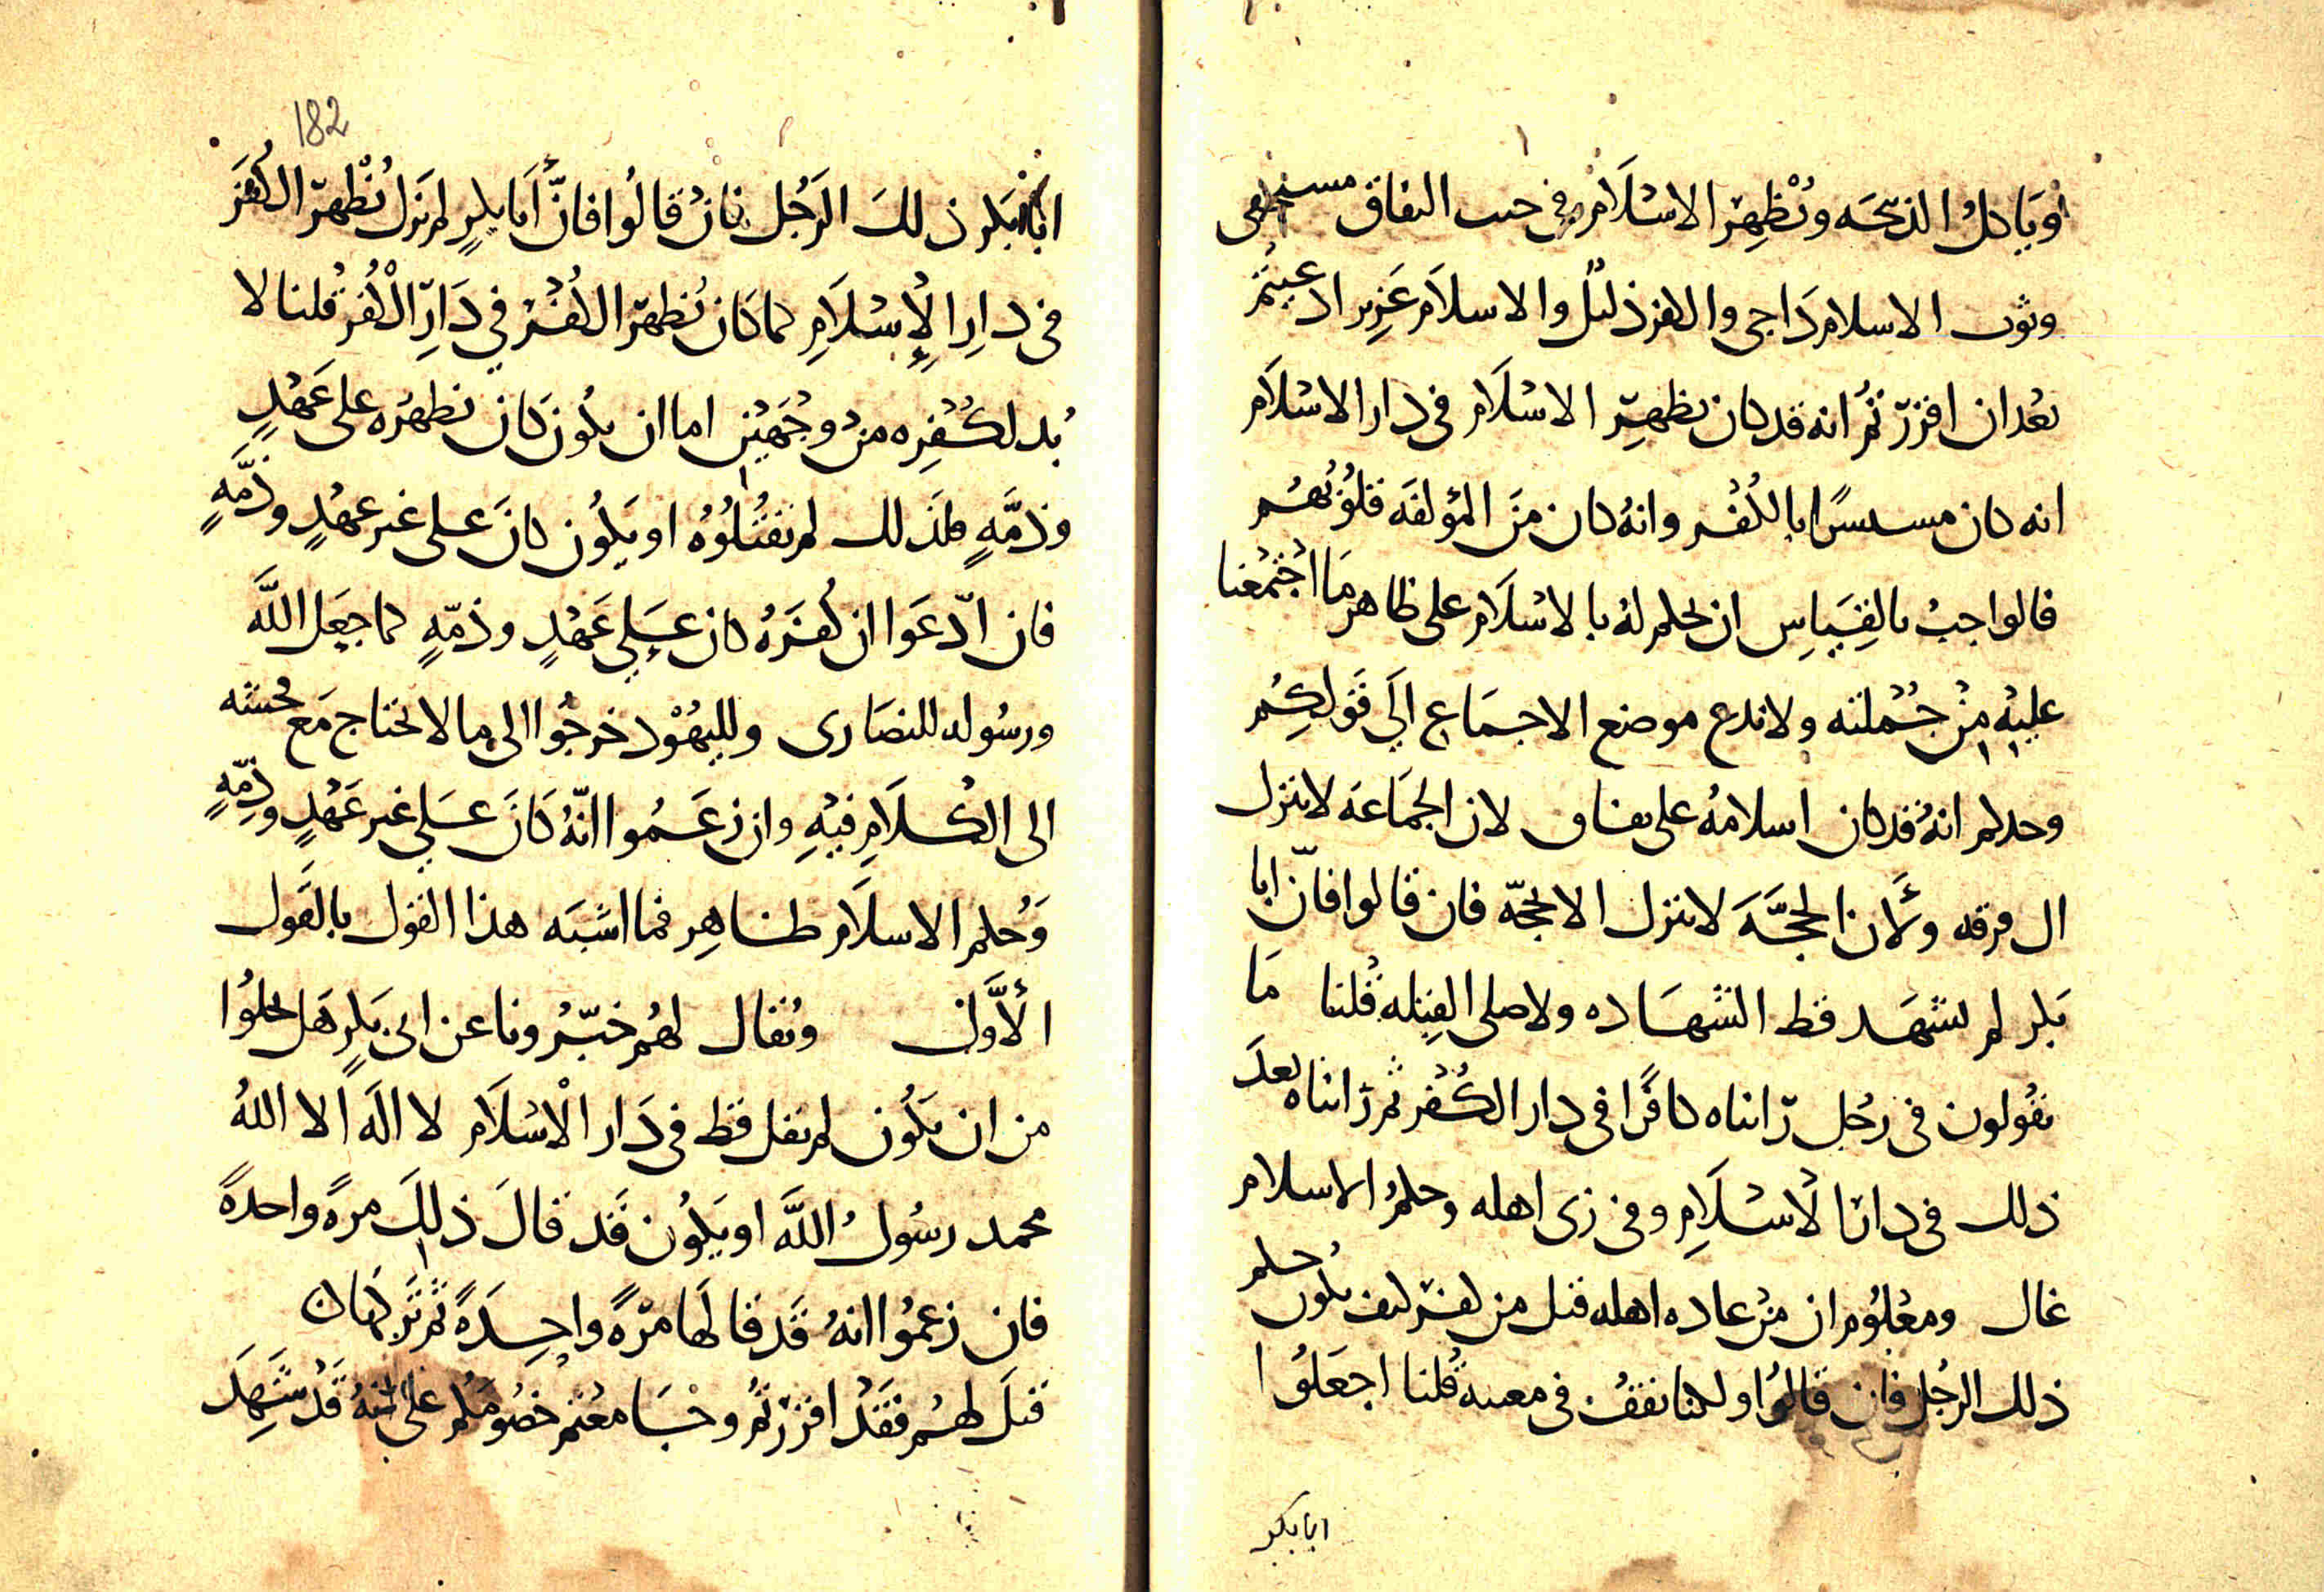 وياكل الذبيحه ويُظهر الاسلام وفي جيب النفاق
وثوب الاسلام داجى والكفر ذليل والاسلام عزيز ادعيتم
بعد ان اقررتم انه قد كان يظهر الاسلام في دار الاسلام
انه كان مستسرًا بالكفر وانه كان من المؤلفه قلوبهم
فالواجب بالقياس ان يحكم له بالاسلام على ظاهر ما اجتمعنا
عليه من جملته ولا ندع موضع الاجماع الى قولكم
وحدكم انه قد كان اسلامه على نفاق لان الجماعه لا تنزل
الى فرقه ولأن الحجّة لا تنزل الا بحجّه فان قالوا فانّ ابا
بكر لم يشهد قط الشهاده ولا صلى القبله قلنا ما
تقولون في رجل رايناه كافرًا في دار الكفر ثم رايناه بعد
ذلك في دار الاسلام وفي زى اهله وحكم الاسلام
غالب ومعلوم ان من عاده اهله قتل من كفر كيف يكون حكم
ذلك الرجل فان قالوا ولكنا نقف في مغيبه قلنا اجعلوا
ابابكر
182
ابابكر ذلك الرجل فان قالوا فانّ أبا بكرٍ لم يزل يُظهر الكفر
في دار الإسلام كما كان يُظهر الكفر في دار الكفر قلنا لا
بد لكفره من وجهين اما ان يكون كان يظهره على عهدٍ
وذمَّهٍ فلذلك لم يقتلوه او يكون كان على غير عهدٍ وذمَّهٍ
فان ادّعوا ان كفره كان على عهدٍ وذمّهٍ كما جعل اللَّه
ورسوله للنصارى ولليهود خرجوا الى ما لا نحتاج مع
الى الكلام فيه وان زعموا انّه كان على غير عهدٍ وذمّهٍ
وحكم الاسلام ظاهر فما اشبه هذا القول بالقول
الأوَّل ويقال لهم خبّرونا عن ابى بكرٍ هل يخلوا
من ان يكون لم يقل قط في دار الاسلام لا اله الا الله
محمد رسول اللَّه او يكون قد قال ذلك مرةً واحدةً
فان زعموا انه قد قالها مرّةً واحدةً ثم تركها كان
قيل لهم فقد اقررتم وجامعتم خصومكم على انه قد شهد